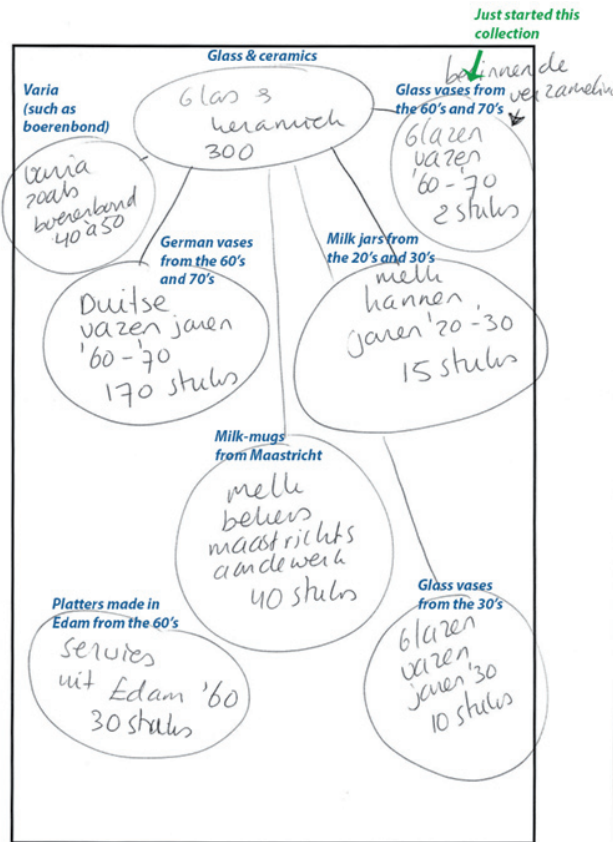 Just started this
collection
beginnende
verzameling
Glass & ceramics
Glas &
keramiek
300
Varia
(such as
boerenbond)
varia
zoals
boerenbond
40 à 50
Glass vases from
the 60's and 70's
Glazen
vazen
'60-'70
2 stuks
German vases
from the 60's
and 70's
Duitse
vazen jaren
'60-'70
170 stuks
Milk jars from
the 20's and 30's
melk
kannen
jaren '20-30
15 stuks
Milk-mugs
from Maastricht
melk
bekers
maastrichts
aardewerk
40 stuks
Platters made in
Edam from the 60's
servies
uit Edam '60
30 stuks
Glass vases
from the 30's
Glazen
vazen
jaren '30
10 stuks